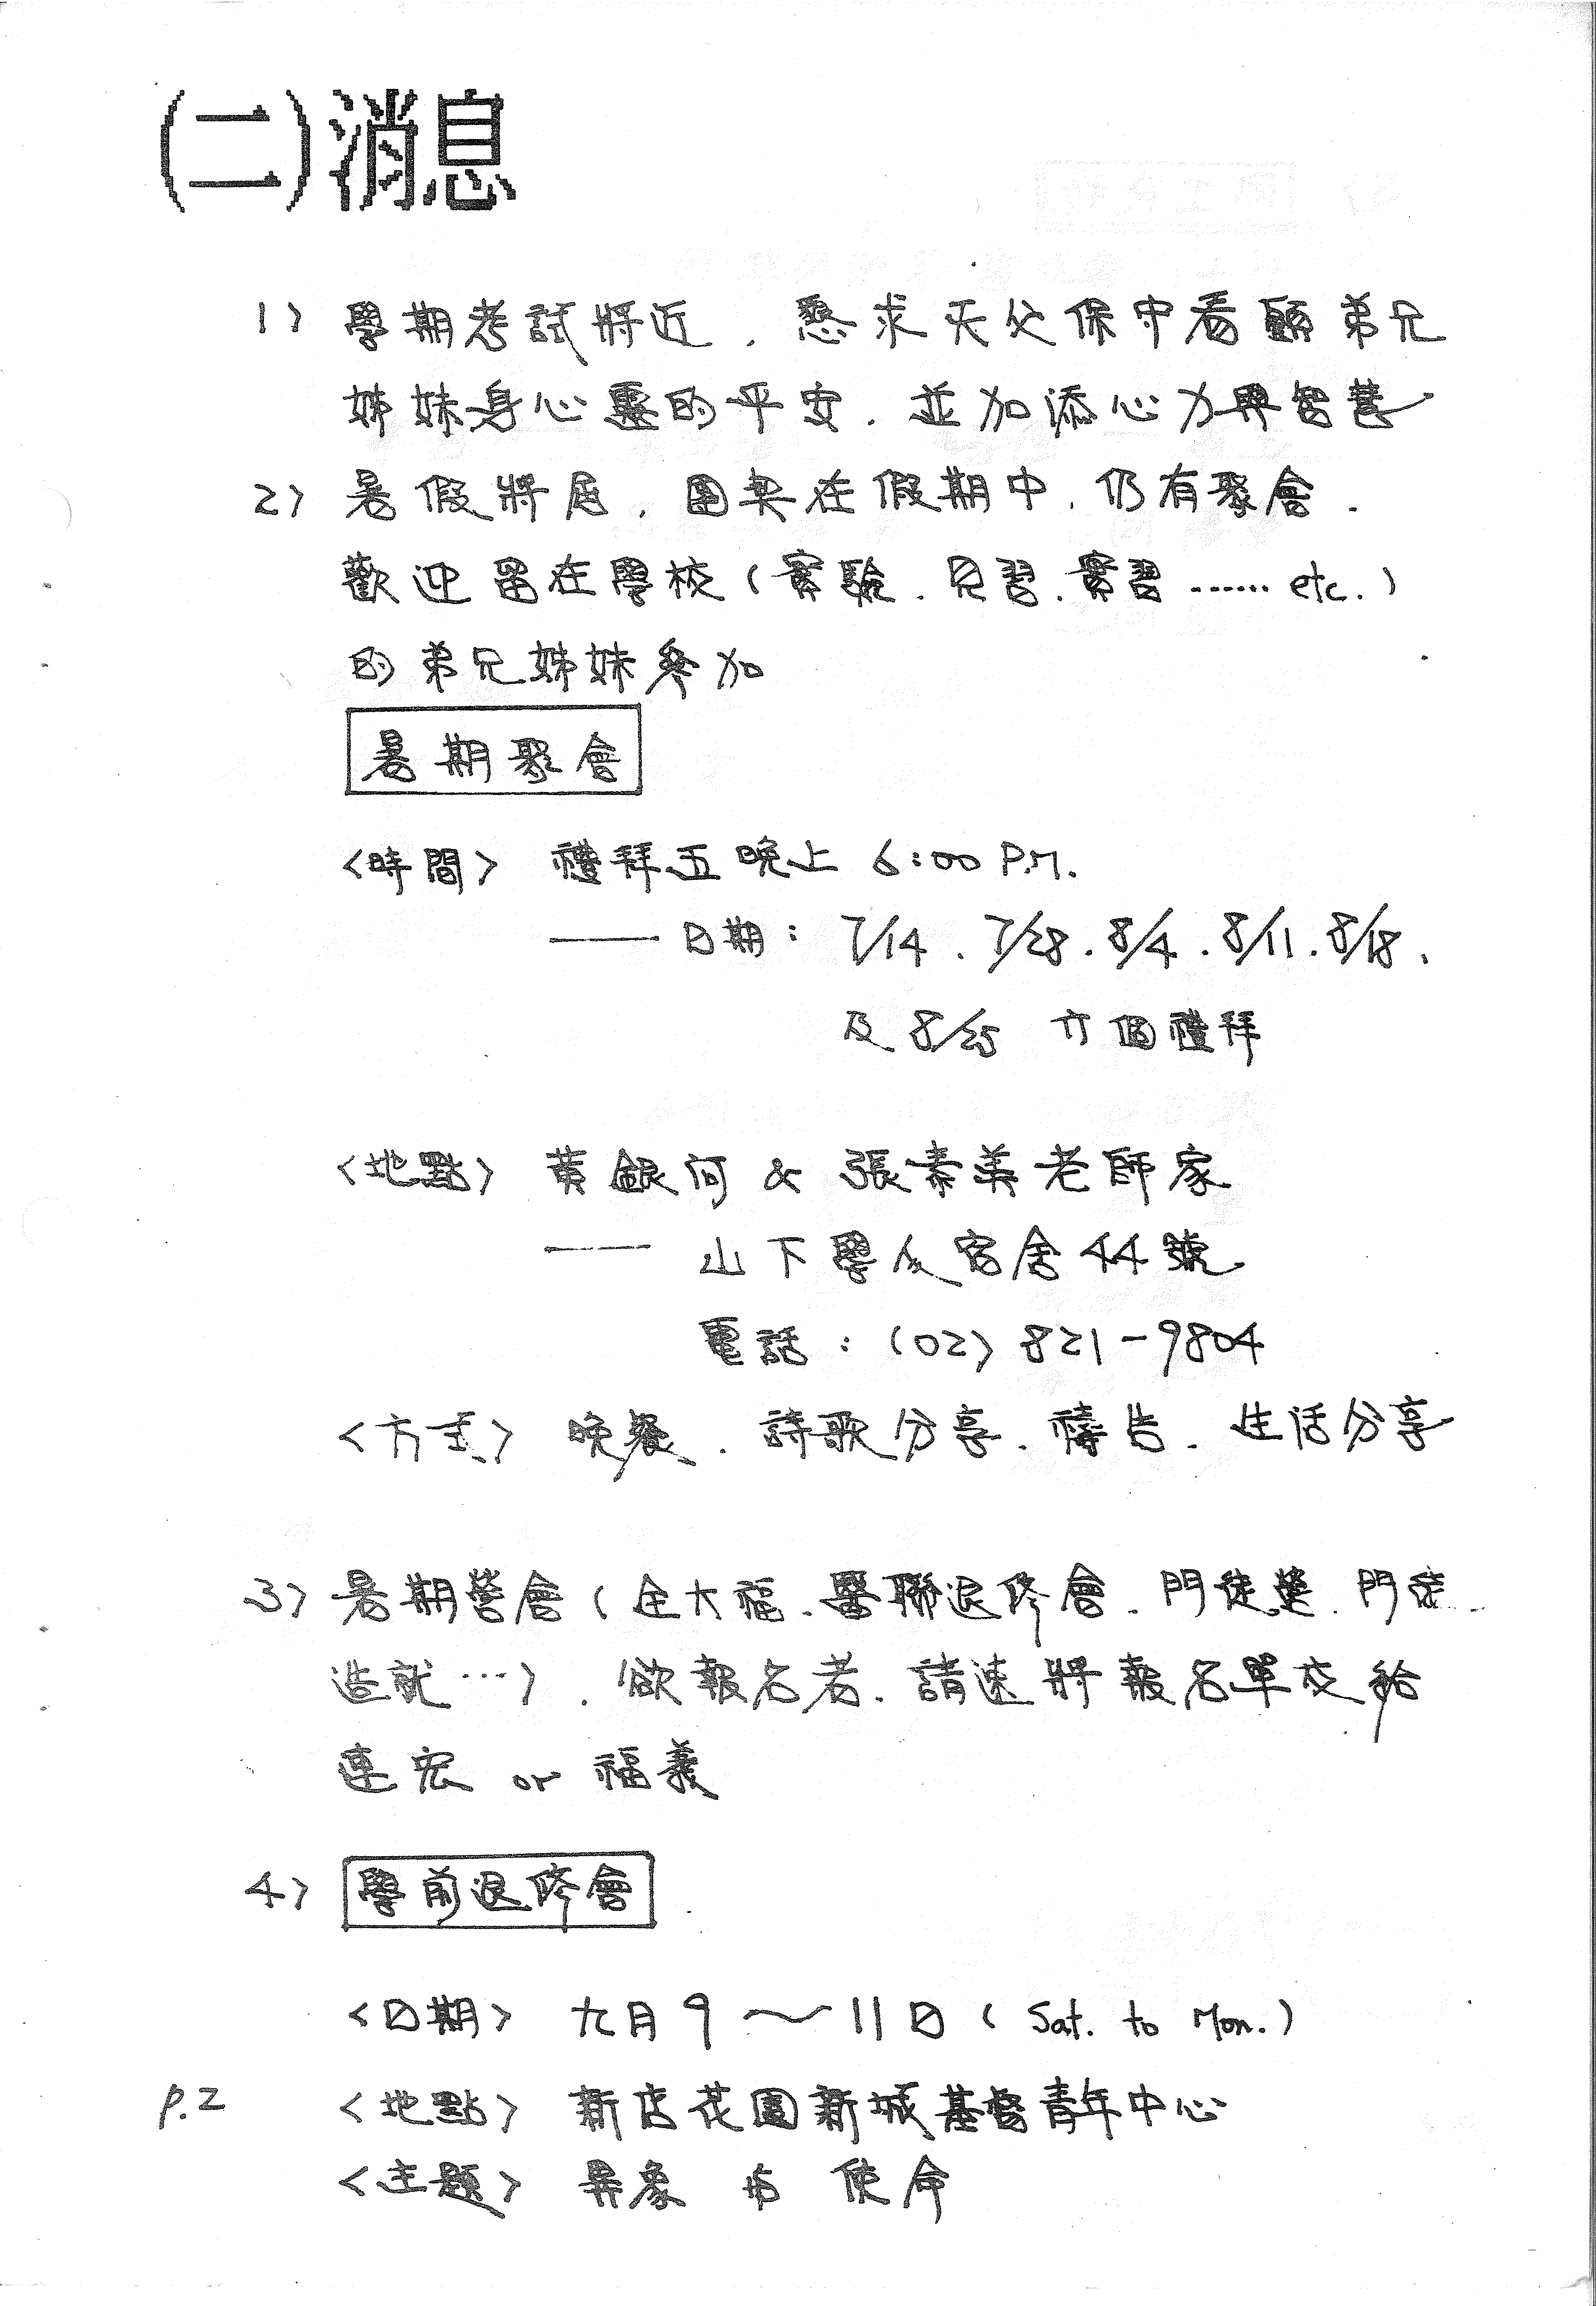 (二)消息
1) 學期考試將近．懇求天父保守看顧弟兄
姊妹身心靈的平安．並加添心力與智慧
2) 暑假將屆．團契在假期中．仍有聚會．
歡迎留在學校(實驗．見習．實習……etc.)
的弟兄姊妹參加
暑期聚會
<時間> 禮拜五晚上 6:00 P.M.
—— 日期： 7/14．7/28．8/4．8/11．8/18．
及 8/25 六個禮拜
<地點> 黃銀河 & 張素美老師家
—— 山下學人宿舍44號
電話：(02) 821-9804
<方式> 晚餐．詩歌分享．禱告．生活分享
3) 暑期營會(全大福．醫聯退修會．門徒營．門徒
造就…)．欲報名者．請速將報名單交給
連宏 or 福義
4) 學前退修會
<日期> 九月9～11日(Sat. to Mon.)
P.2 <地點> 新店花園新城基督青年中心
<主題> 異象与使命